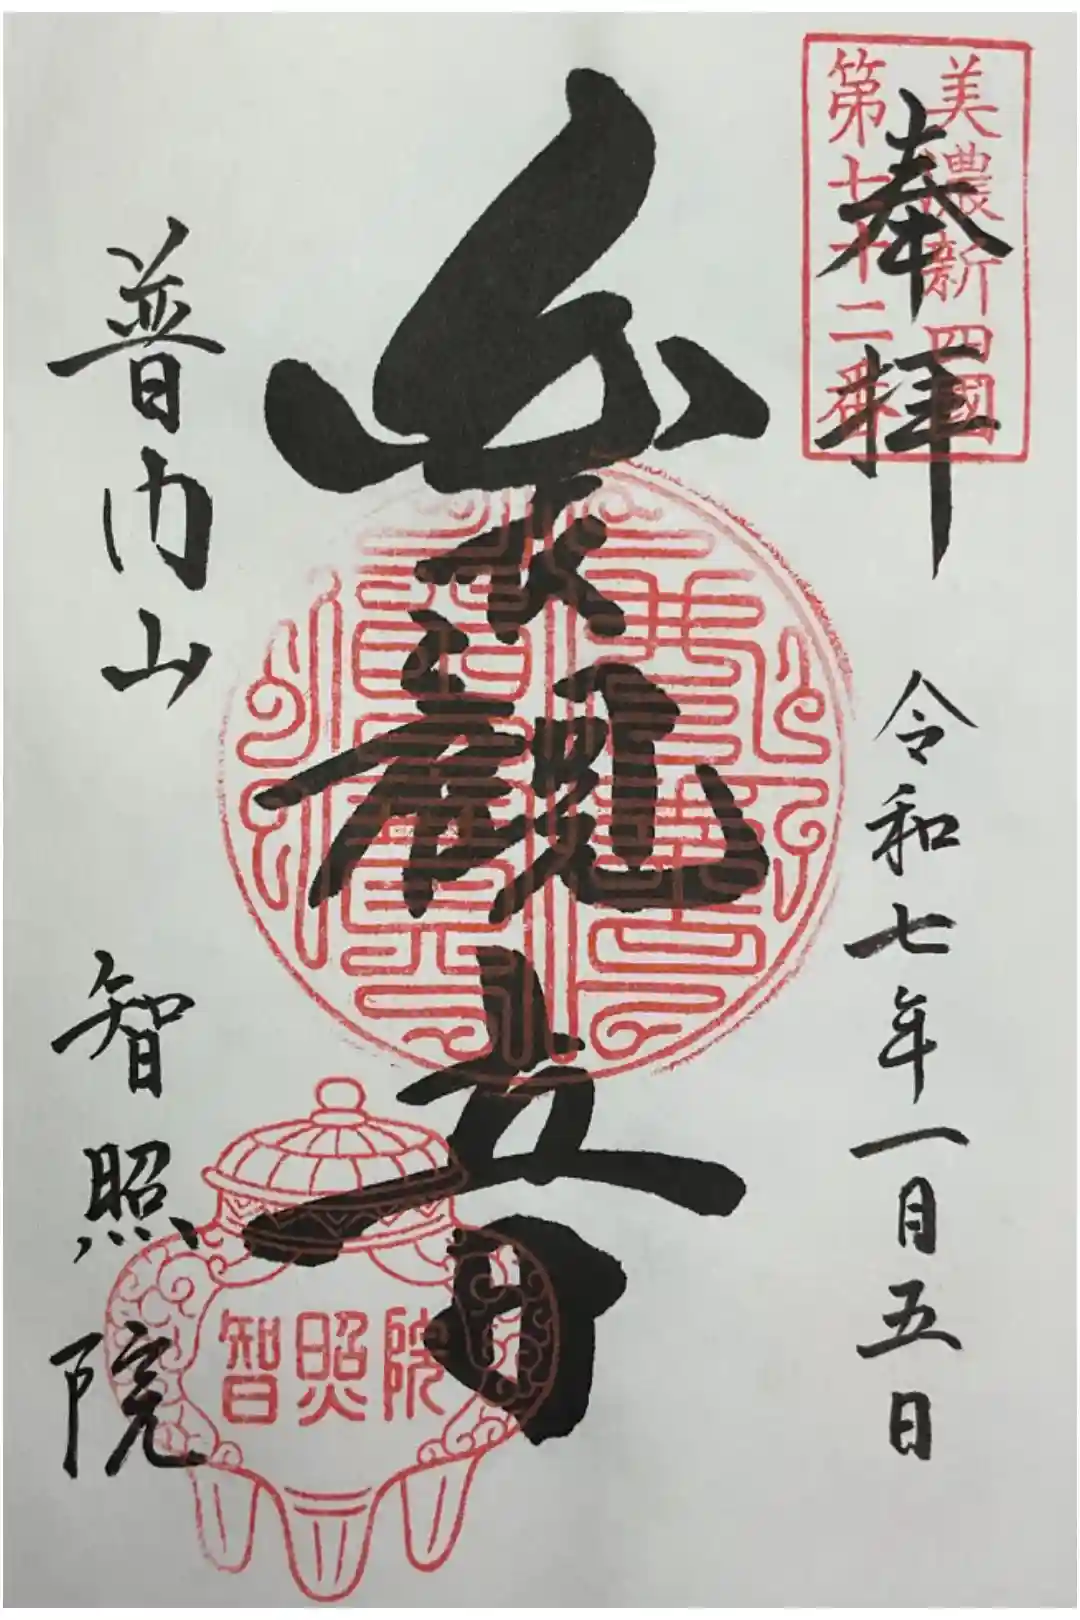 美濃新四國
第七十二番
奉拝
令和七年一月五日
観音
普門山
智照院
智照院